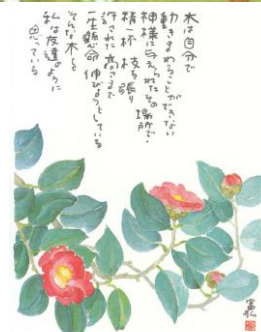 木は自分で
動きまわることができない
神様に与えられたその場所で
精一杯 枝を張り
許された高さまで
一生懸命 伸びようとしている
そんな木を
私は友達のように
思っている
富弘